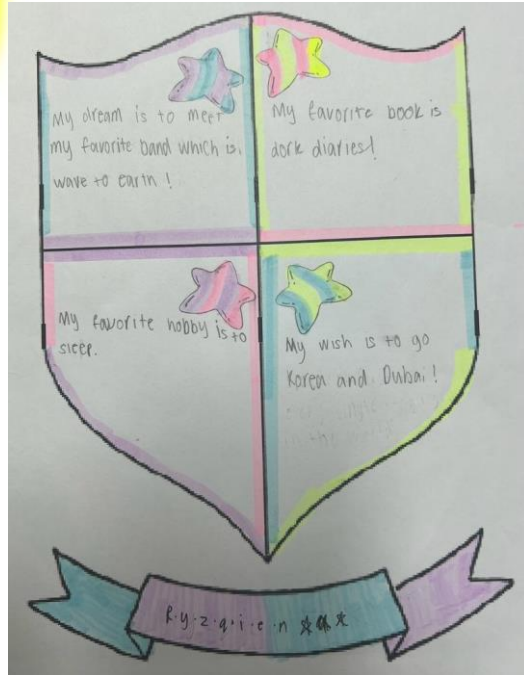 My dream is to meet
my favorite band which is
wave to earth !
My favorite book is
dork diaries!
My favorite hobby is to
sleep.
My wish is to go
Korea and Dubai !
in the
R.y.z.q.i.e.n ***